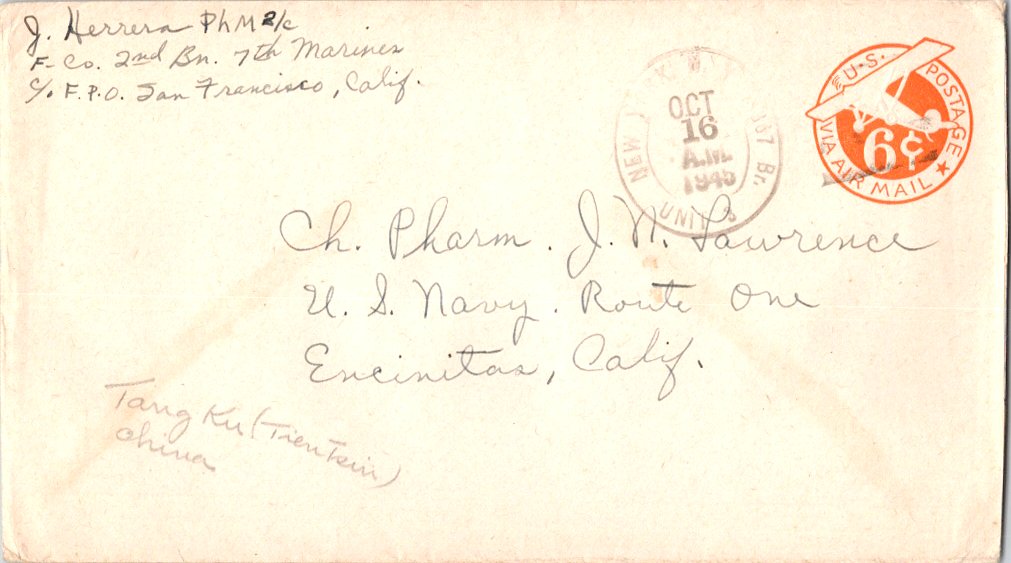 J. Herrera PhM 2/c
F- Co. 2nd Bn. 7th Marines
c/o F.P.O. San Francisco, Calif.
NEW Y K, N.Y. 167 Br.
OCT
16
A.M.
1945
UNIT 3
U.S. POSTAGE
6¢
VIA AIR MAIL
Ch. Pharm. J. N. Lawrence
U. S. Navy. Route One
Encinitas, Calif.
Tang Ku (Tientsin)
China